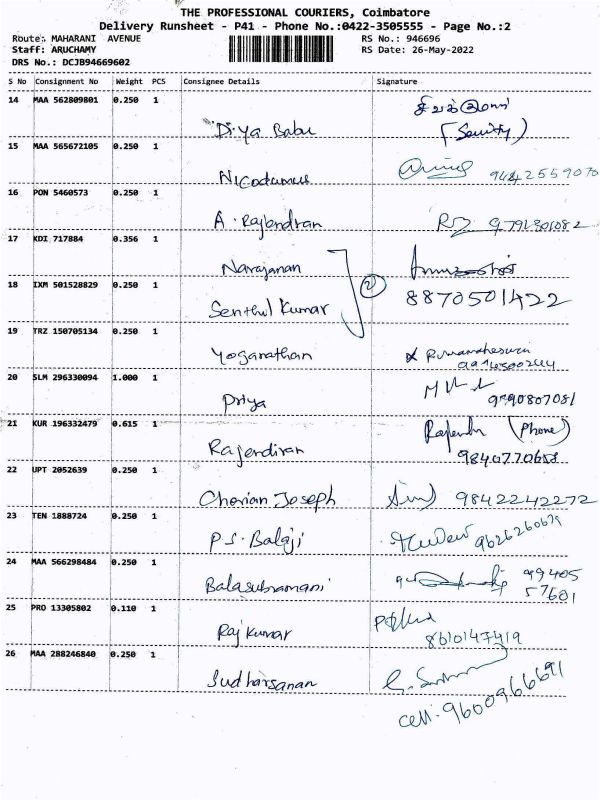 THE PROFESSIONAL COURIERS, Coimbatore
Delivery Runsheet - P41 - Phone No.:0422-3505555 - Page No.:2
Route: MAHARANI AVENUE RS No.: 946696
Staff: ARUCHAMY RS Date: 26-May-2022
DRS No.: DCJB94669602
S No Consignment No Weight PCS Consignee Details Signature
14 MAA 562809801 0.250 1 Diya Babu (Security)
15 MAA 565672105 0.250 1 Nicodamus 9442559070
16 PON 5460573 0.250 1 A. Rajendran
17 KDI 717884 0.356 1 Narayanan
18 IXM 501528829 0.250 1 Senthil Kumar 2 8870501422
19 TRZ 150705134 0.250 1 Yogarathan
20 SLM 296330094 1.000 1 Priya
21 KUR 196332479 0.615 1 Rajendiran (Phone)
9840770658
22 UPT 2052639 0.250 1 Cherian Joseph 9842242272
23 TEN 1888724 0.250 1 P.S. Balaji
24 MAA 566298484 0.250 1 Balasubramani 99405
57601
25 PRO 13305802 0.110 1 Rajkumar
8610147419
26 MAA 288246840 0.250 1 Sudharsanan
cell: 9600966691